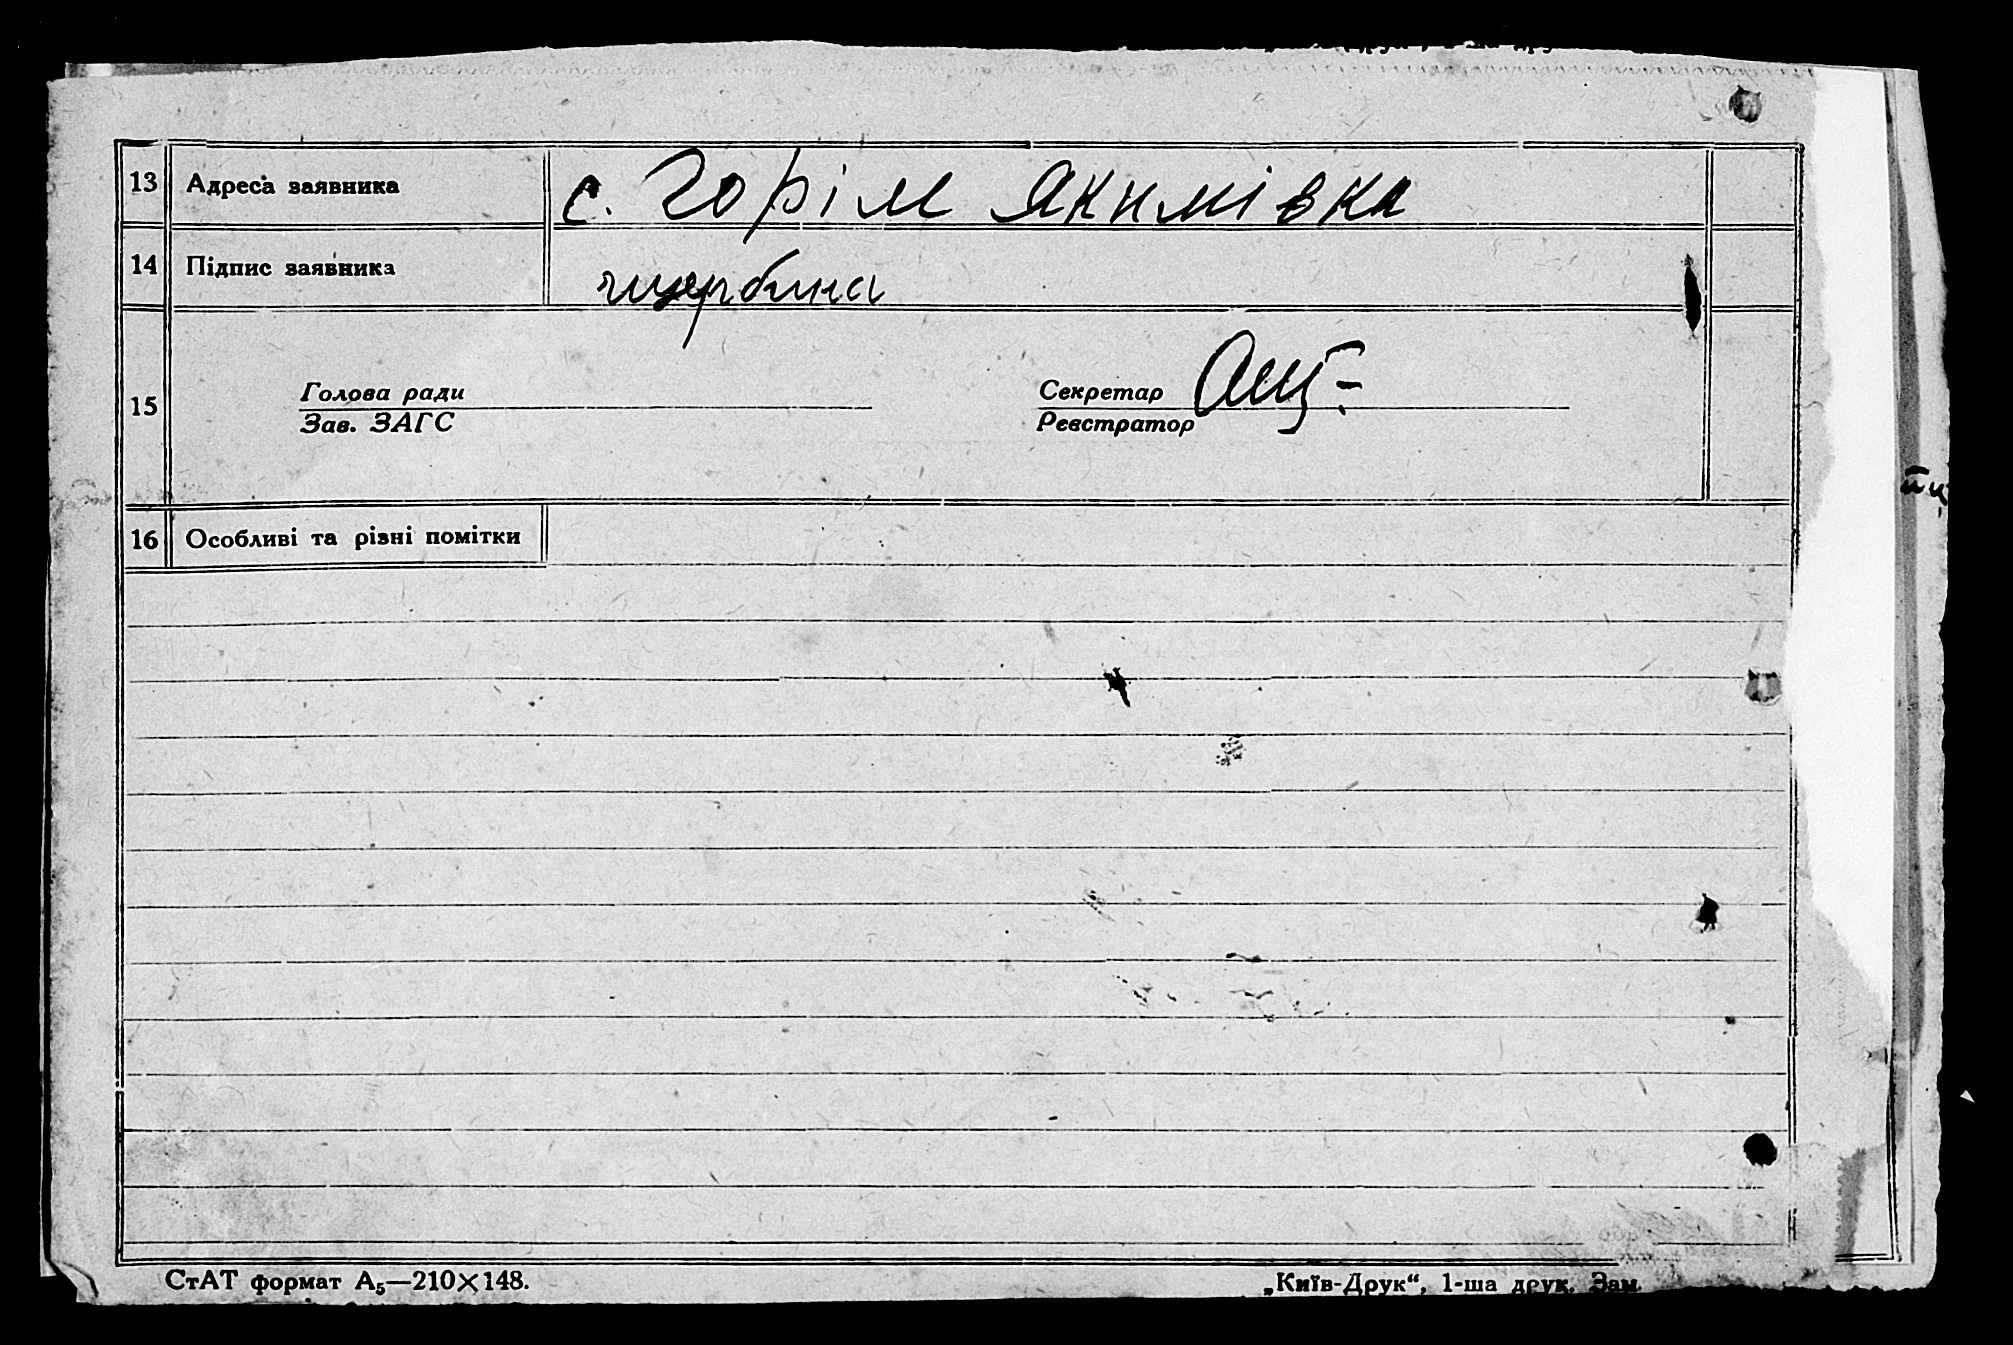 13 Адреса заявника с. Горім Якимівка
14 Підпис заявника щербина
15 Голова ради Секретар
Зав. ЗАГС Реєстратор
16 Особливі та різні помітки
СтАТ формат А₅—210×148. „Київ-Друк“, 1-ша друк. Зам.